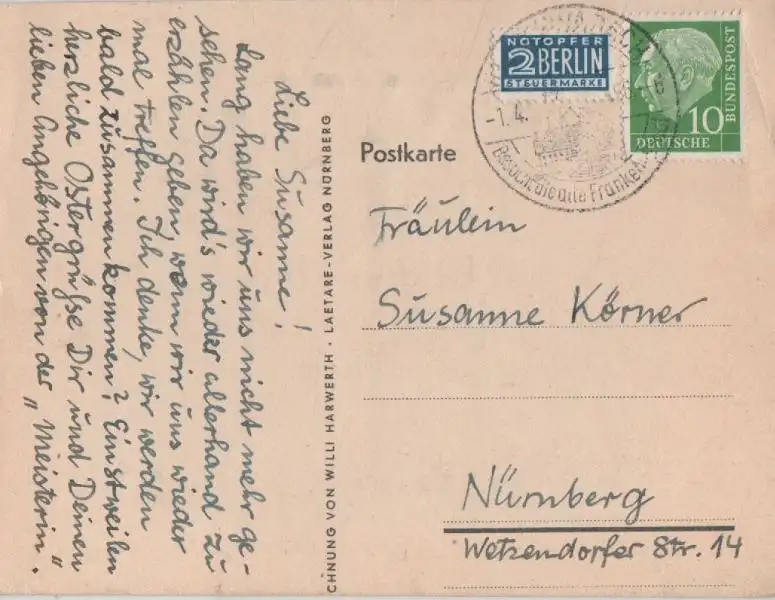 Liebe Susanne!
Lang haben wir uns nicht mehr ge-
sehen. Da wird's wieder allerhand zu
erzählen geben, wenn wir uns wieder
mal treffen. Ich denke, wir werden
bald zusammenkommen? Einstweilen
herzliche Ostergrüße Dir und Deinen
lieben Angehörigen von der „Meisterin."
CHNUNG VON WILLI HARWERTH · LAETARE-VERLAG NÜRNBERG
NOTOPFER
2 BERLIN
STEUERMARKE
-1.4.
Besucht die alte Franken
10
DEUTSCHE
BUNDESPOST
Postkarte
Fräulein
Susanne Körner
Nürnberg
Wetzendorfer Str. 14